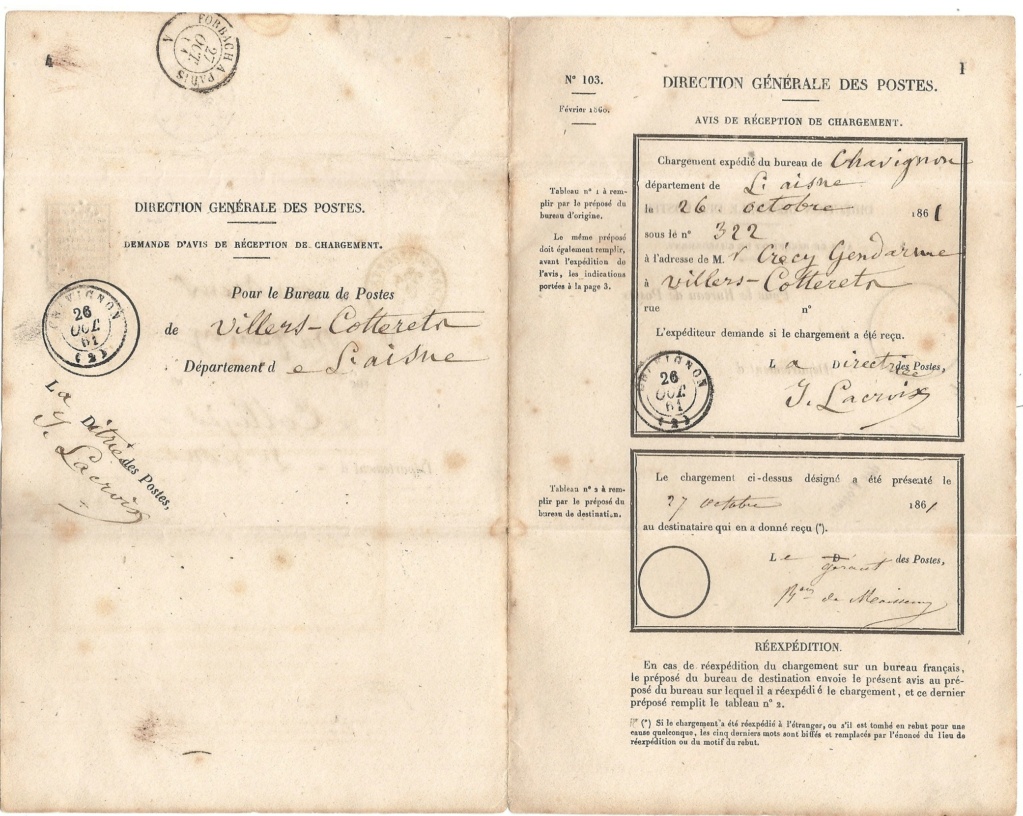 FORBACH A PARIS
27
OCT.
DIRECTION GENÉRALE DES POSTES.
DEMANDE D'AVIS DE RÉCEPTION DE CHARGEMENT.
Pour le Bureau de Postes
de Villers-Cotterets
Département d e L'aisne
CHAVIGNON
26
OCT.
61
(2)
La D itrice des Postes,
J. Lacroix
1
N° 103.
Février 1860.
DIRECTION GÉNÉRALE DES POSTES.
AVIS DE RÉCEPTION DE CHARGEMENT.
Tableau n° 1 à rem-
plir par le préposé du
bureau d'origine.
Le même préposé
doit également remplir,
avant l'expédition de
l'avis, les indications
portées à la page 3.
Chargement expédié du bureau de Chavignon
département de L'aisne
le 26 octobre 1861
sous le n° 322
à l'adresse de M. r Crécy Gendarme
à Villers-Cotterets
rue n°
L'expéditeur demande si le chargement a été reçu.
La Directrice des Postes,
J. Lacroix
CHAVIGNON
26
OCT.
61
(2)
Tableau n° 2 à rem-
plir par le préposé du
bureau de destination.
Le chargement ci-dessus désigné a été présenté le
27 octobre 1861
au destinataire qui en a donné reçu (*).
Le D gérant des Postes,
de
RÉEXPÉDITION.
En cas de réexpédition du chargement sur un bureau français,
le préposé du bureau de destination envoie le présent avis au pré-
posé du bureau sur lequel il a réexpédié le chargement, et ce dernier
préposé remplit le tableau n° 2.
(*) Si le chargement a été réexpédié à l'étranger, ou s'il est tombé en rebut pour une
cause quelconque, les cinq derniers mots sont biffés et remplacés par l'énoncé du lieu de
réexpédition ou du motif du rebut.